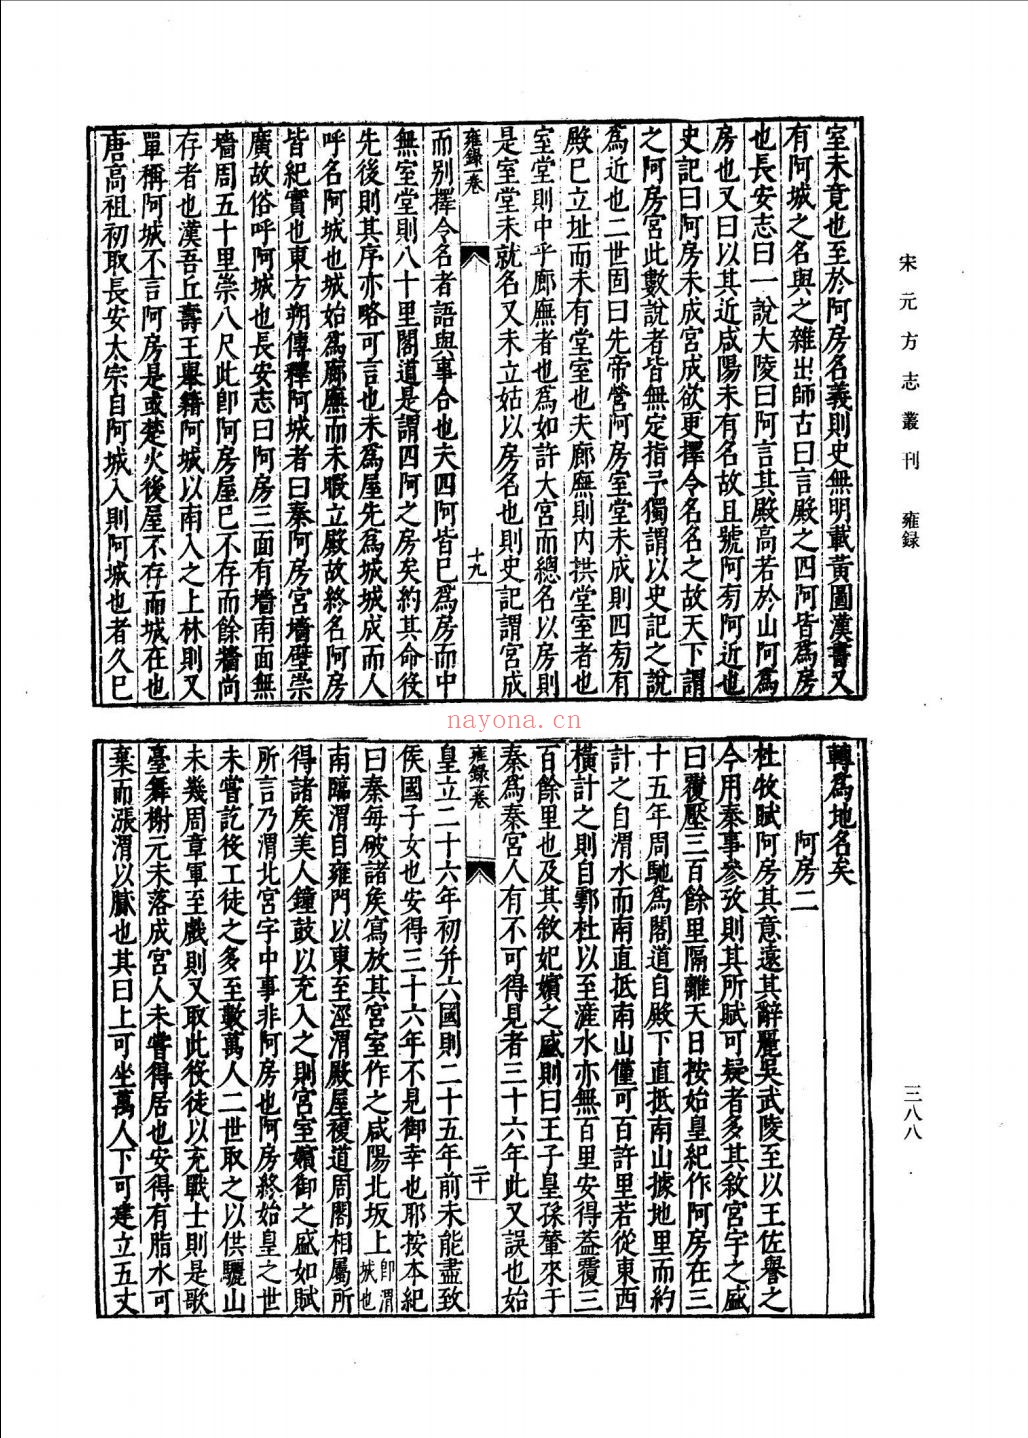 宋元方志叢刊 雍録
三八八
室未竟也至於阿房名義則史無明載黄圖漢書又
有阿城之名與之雜出師古曰言殿之四阿皆爲房
也長安志曰一說大陵曰阿言其殿高若於山阿爲
房也又曰以其近咸陽未有名故且號阿房阿近也
史記曰阿房未成宮成欲更擇令名名之故天下謂
之阿房宮此數説者皆無定指予獨謂以史記之說
爲近也二世固曰先帝營阿房室堂未成則四旁有
殿巳立址而未有堂室也夫廊廡則内拱堂室者也
室堂則中乎廊廡者也爲如許大宮而總名以房則
是室堂未就名又未立姑以房名也則史記謂宮成
雍録一卷
十九
而别擇令名者語與事合也夫四阿皆巳爲房而中
無室堂則八十里閣道是謂四阿之房矣約其命役
先後則其序亦略可言也未爲屋先爲城城成而人
呼名阿城也城始爲廊廡而未暇立殿故終名阿房
皆紀實也東方朔傳釋阿城者曰秦阿房宮墻壁崇
廣故俗呼阿城也長安志曰阿房三面有墻南面無
墻周五十里崇八尺此即阿房屋巳不存而餘牆尚
存者也漢吾丘壽王舉籍阿城以南入之上林則又
單稱阿城不言阿房是或楚火後屋不存而城在也
唐高祖初取長安太宗自阿城入則阿城也者久巳
轉爲地名矣
阿房二
杜牧賦阿房其意遠其辭麗吳武陵至以王佐譽之
今用秦事參攷則其所賦可疑者多其敘宮宇之盛
曰覆壓三百餘里隔離天日按始皇紀作阿房在三
十五年周馳爲閣道自殿下直抵南山據地里而約
計之自渭水而南直抵南山僅可百許里若從東西
橫計之則自鄠杜以至滻水亦無百里安得葢覆三
百餘里也及其敘妃嬪之盛則曰王子皇孫輦來于
秦爲秦宮人有不可得見者三十六年此又誤也始
雍録一卷
二十
皇立二十六年初并六國則二十五年前未能盡致
侯國子女也安得三十六年不見御幸也耶按本紀
曰秦每破諸矦寫放其宮室作之咸陽北坂上即渭城也
南臨渭自雍門以東至涇渭殿屋複道周閣相屬所
得諸矦美人鐘鼓以充入之則宮室嬪御之盛如賦
所言乃渭北宮宇中事非阿房也阿房終始皇之世
未嘗訖役工徒之多至數萬人二世取之以供驪山
未幾周章軍至戲則又取此役徒以充戰士則是歌
臺舞榭元未落成宮人未嘗得居也安得有脂水可
棄而漲渭以膩也其曰上可坐萬人下可建立五丈
nayona.cn